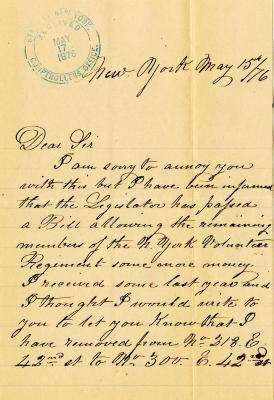 STATE OF NEW YORK
RECEIVED
MAY
17
1876
COMPTROLLER'S OFFICE.
New York May 15th/76
Dear Sir
I am sorry to annoy you
with this but I have been informed
that the Legislator has passed
a Bill allowing the remaining
members of the N. York Volunteer
Regiment some more money
I received some last year and
I thought I would write to
you to let you Know that I
have removed from No 318. E.
42nd st to No 300. E. 42nd st